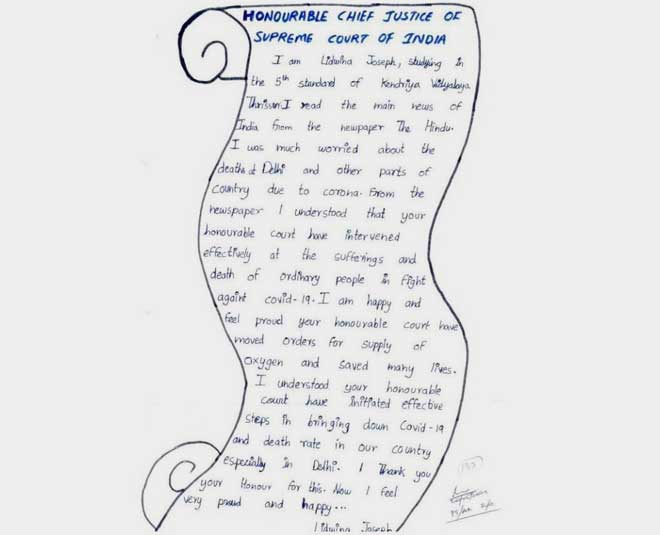 HONOURABLE CHIEF JUSTICE OF
SUPREME COURT OF INDIA
I am Lidwina Joseph, studying in
the 5th standard of Kendriya Vidyalaya
Thrissur. I read the main news of
India from the newpaper The Hindu.
I was much worried about the
deaths at Delhi and other parts of
country due to corona. From the
newspaper I understood that your
honourable court have intervened
effectively at the sufferings and
death of ordinary people in fight
againt covid-19. I am happy and
feel proud your honourable court have
moved orders for supply of
oxygen and saved many lives.
I understood your honourable
court have initiated effective
steps in bringing down Covid-19
and death rate in our country
especially in Delhi. I Thank you
your Honour for this. Now I feel
very proud and happy...
Lidwina Joseph